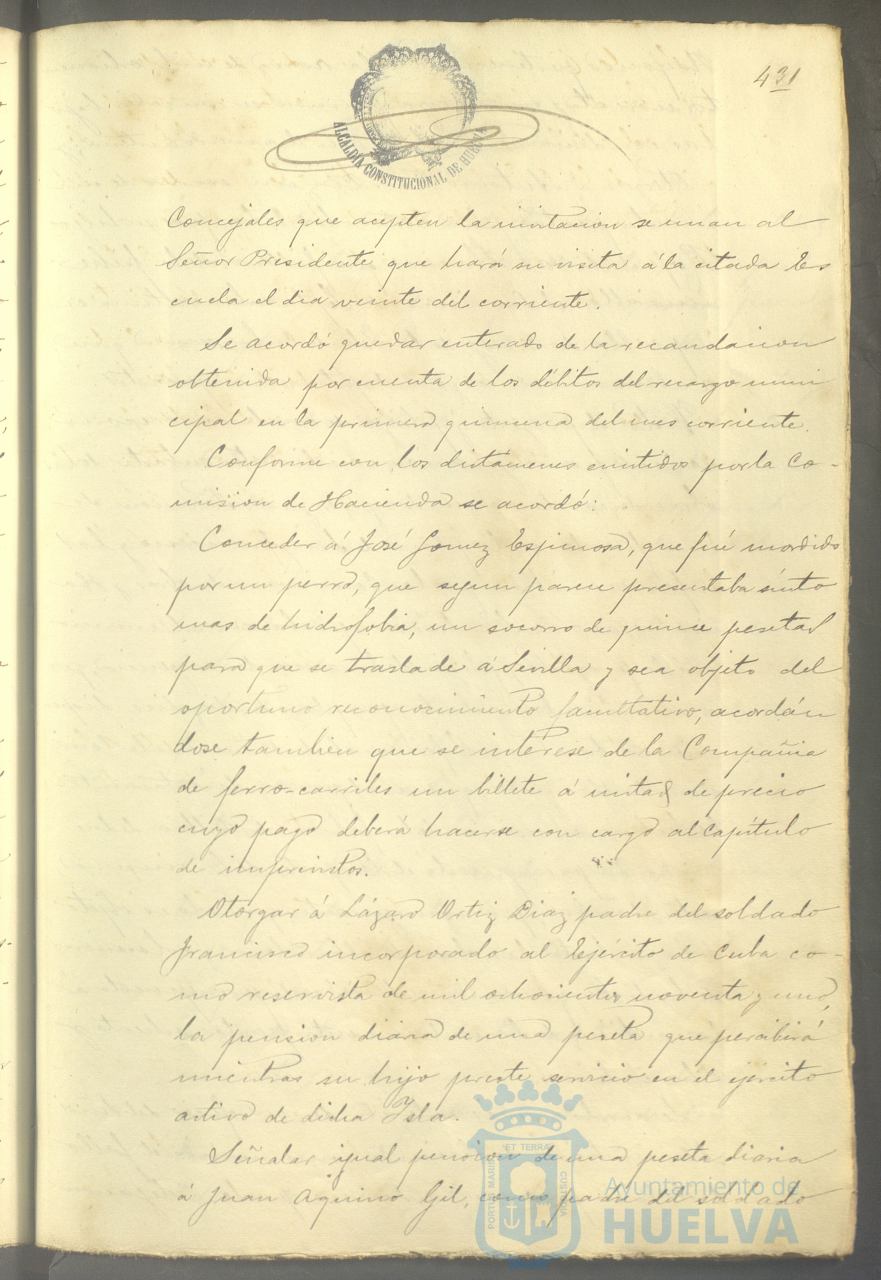 431
ALCALDIA CONSTITUCIONAL DE HUELVA
Concejales que acepten la invitacion se unan al
Señor Presidente que hará su visita á la citada Es
cuela el dia veinte del corriente.
Se acordó quedar enterado de la recaudacion
obtenida por cuenta de los débitos del recargo muni
cipal en la primera quincena del mes corriente.
Conforme con los dictámenes emitidos por la Co-
mision de Hacienda se acordó:
Conceder á José Gomez Espinosa, que fué mordido
por un perro, que segun parece presentaba sínto
mas de hidrofobia, un socorro de quince pesetas
para que se traslade á Sevilla y sea objeto del
oportuno reconocimiento facultativo, acordán
dose tambien que se interese de la Compañia
de ferro-carriles un billete á mitad de precio
cuyo pago deberá hacerse con cargo al Capítulo
de imprevistos.
Otorgar á Lázaro Ortiz Diaz padre del soldado
Francisco incorporado al Ejército de Cuba co-
mo reservista de mil ochocientos noventa y uno,
la pension diaria de una peseta que percibirá
mientras su hijo preste servicio en el ejercito
activo de dicha Isla.
Señalar igual pension de una peseta diaria
á Juan Aquino Gil, como padre del soldado
PORTUS MARIS ET TERRAE CUSTODIA
Ayuntamiento de
HUELVA